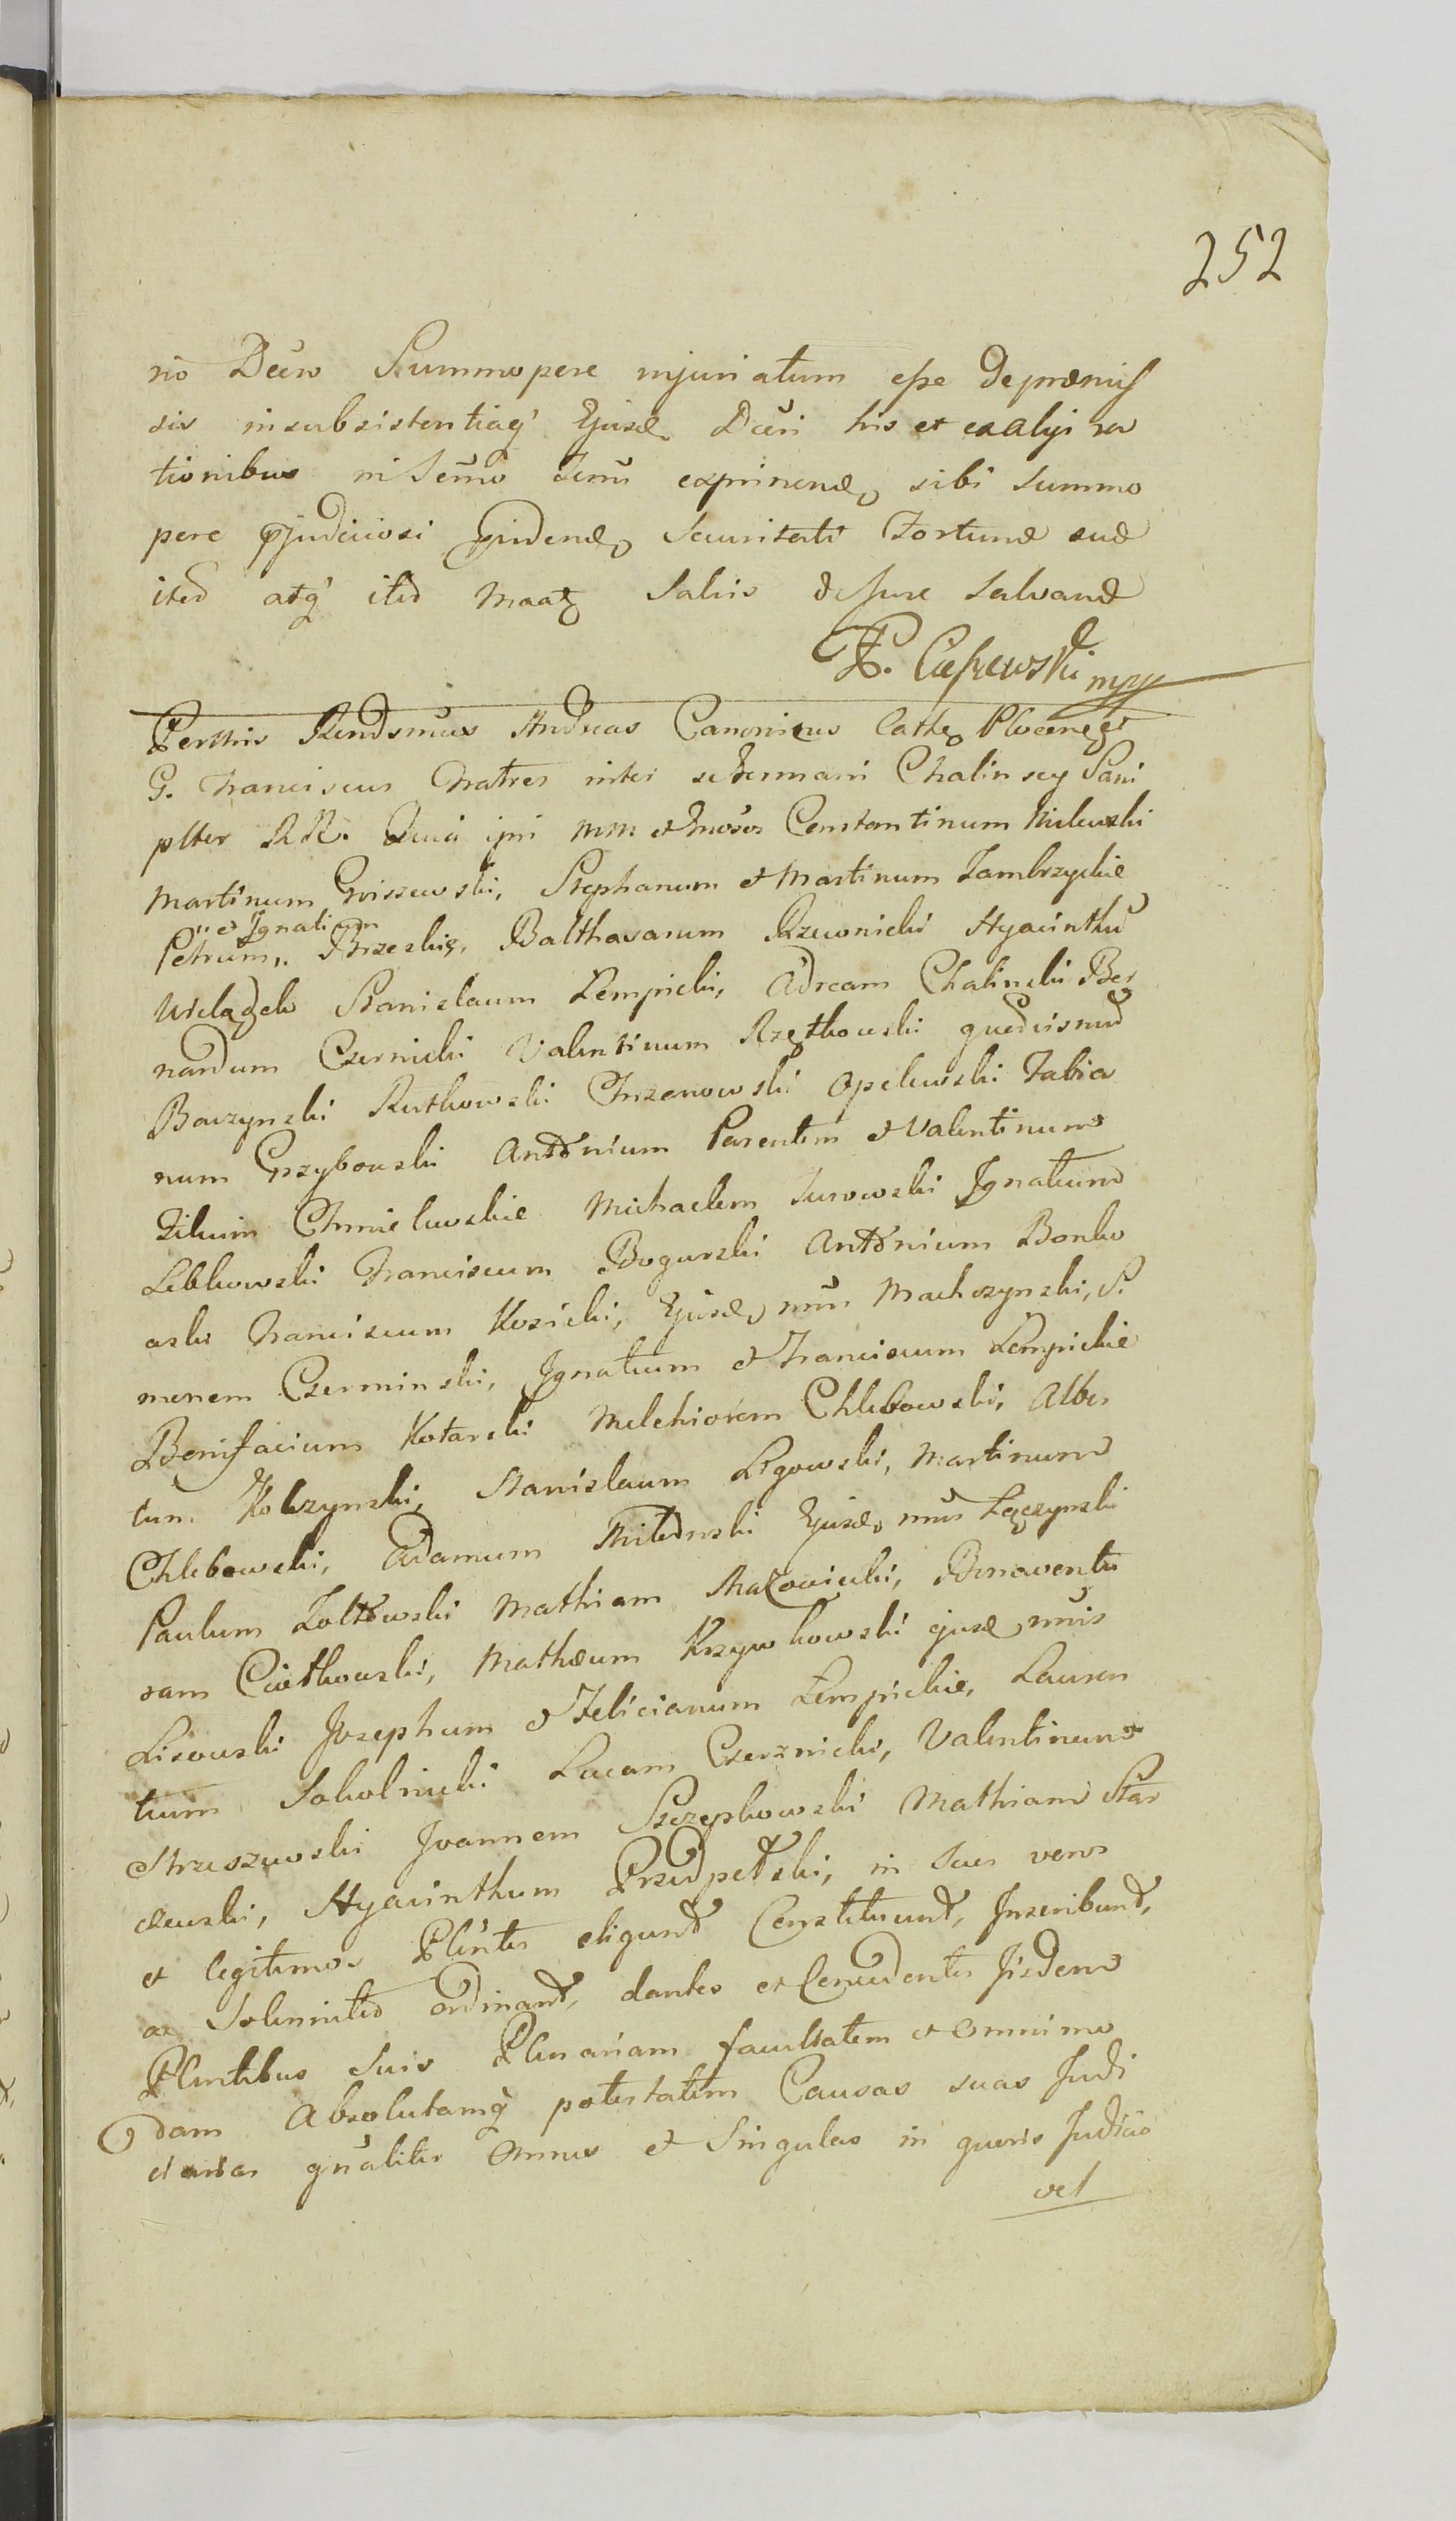 252
rio Decro Summopere injuriatum esse de præmis
sis insubsistentiaq' Ejusd. Decri his et ex alijs ra
tionibus in termo exprimend. sibi summo
pere præjudiciosi securitati Fortunæ suæ
ited atq' ited Salvis de Jure salvand
Perthis Rendsmus Andreas Canonicus Cath. Plocens. et
G. Franciscus Fratres inter se Germani Chalinscy Sani
plter RR. Quia ipsi MM et Gnosos Constantinum Milewski
Martinum Goiszewski, Stephanum et Martinum Zambrzyckie
" et Ignatium
Petrum,, Brzeskie, Balthasarum Rzewnicki Hyacinthũ
Stanislaum Lempicki, Adream Chalinski Ber
nardum Czernicki Valentinum Rzętkowski
Baczynski Rutkowski Chrzanowski Opelewski Fabia
num Grzybowski Antonium Parentem et Valentinum
Filium Chmielewskie Michaelem Turowski Ignatium
Lebkowski Franciscum Bogurski Antonium Bonko
wski Franciscum Kosicki, Ejusd. mũs Machczynski, Si
monem Czerminski, Ignatium et Franciscum Lempickie
Bonifacium Kotarski Melchiorem Chlebowski, Alber
tum Kolczynski, Stanislaum Ligowski, Martinum
Chlebowski, Adamum Ejusd. mũs Łączynski
Paulum Zoltowski Mathiam Mazowiecki, Bonaventu
ram Cietkowski, Mathæum Krzywkowski ejusd. mũis
Lisowski Josephum et Felicianum Lempickie, Lauren
tium Sokolnicki Lucam Czerznicki, Valentinum
Strzeszewski Joannem Szczepkowski Mathiam Star
czewski, Hyacinthum Przedpełski, in suos veros
et legitimos Plentes eligunt Constituunt, Inscribunt,
ac Solennited ordinant, dantes et Concedentes Iisdem
Plentibus suis Plenariam facultatem et omnimo
dam Absolutamq' potestatem Causas suas Judi
ciarias gñaliter Omnes et Singulas in quovis Judicio
vel